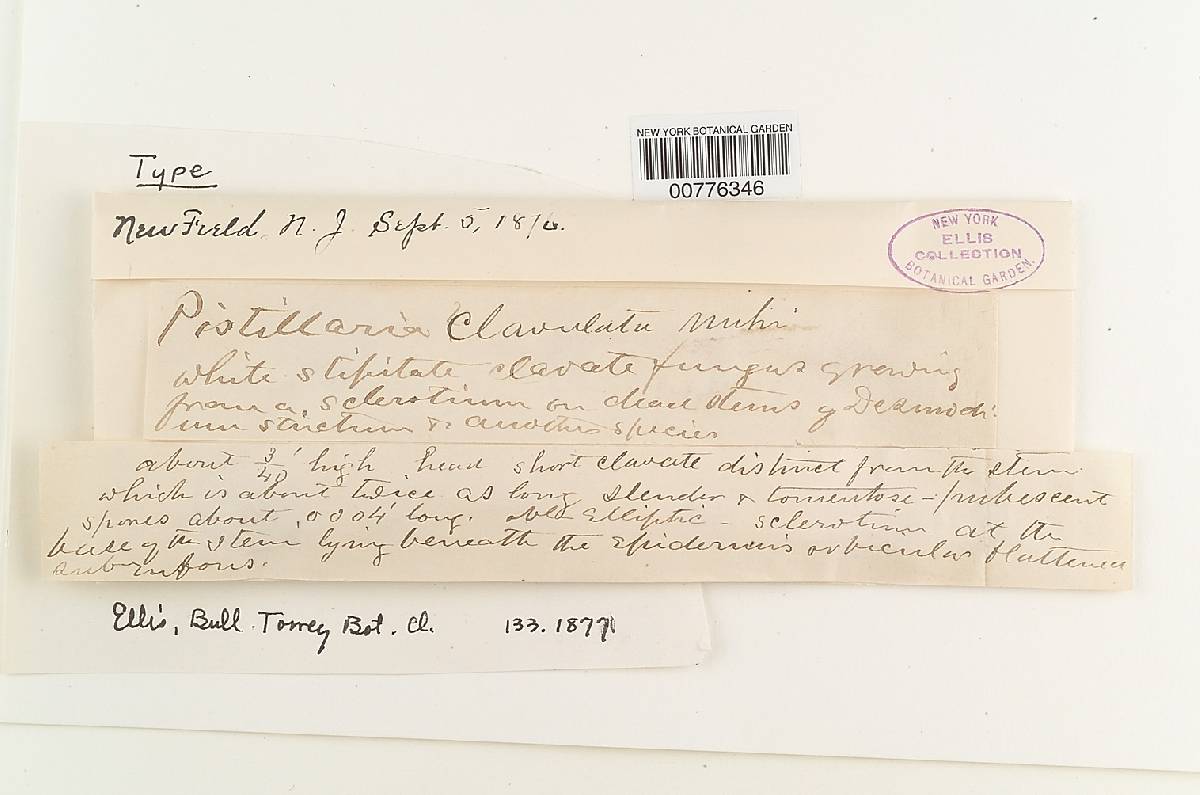 NEW YORK BOTANICAL GARDEN
00776346
Type
NewField, N. J. Sept. 5, 1876.
NEW YORK
ELLIS
COLLECTION
BOTANICAL GARDEN.
Pistillaria Clavulata mihi
white stipitate clavate fungus growing
from a sclerotium on dead stems of Desmodi-
um strictum & another species
about 3/40' high head short clavate distinct from the stem
which is about twice as long slender & tomentose-pubescent
spores about .0004' long. elliptic - sclerotium at the
base of the stem lying beneath the epidermis orbicular flattened
subrufous.
Ellis, Bull. Torrey Bot. Cl. 133. 1877